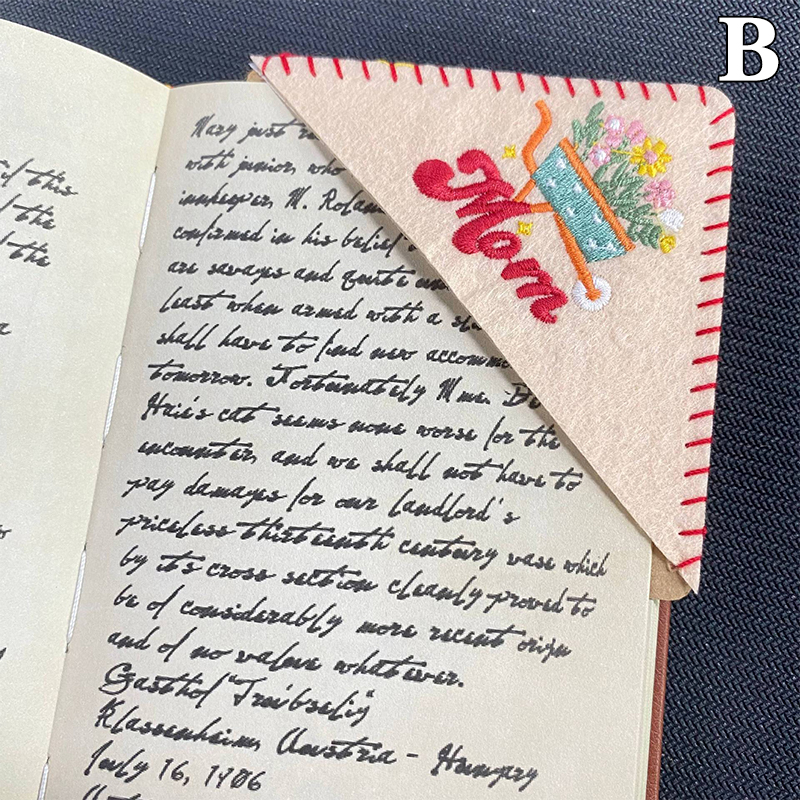 B
Mom
this
the
the
Mary just
with junior, who
innkeeper, M.
confirmed in his belief
are savages and quite
least when armed with a
shall have to find new
tomorrow. Fortunately Mme.
Haie's cat seems none worse for the
encounter, and we shall not have to
pay damages for our landlord's
priceless thirteenth century vase which
by its cross section cleanly proved to
be of considerably more recent origin
and of no value whatever.
Gasthof "Treibselig"
Klassenheim, Austria - Hungary
July 16, 1906